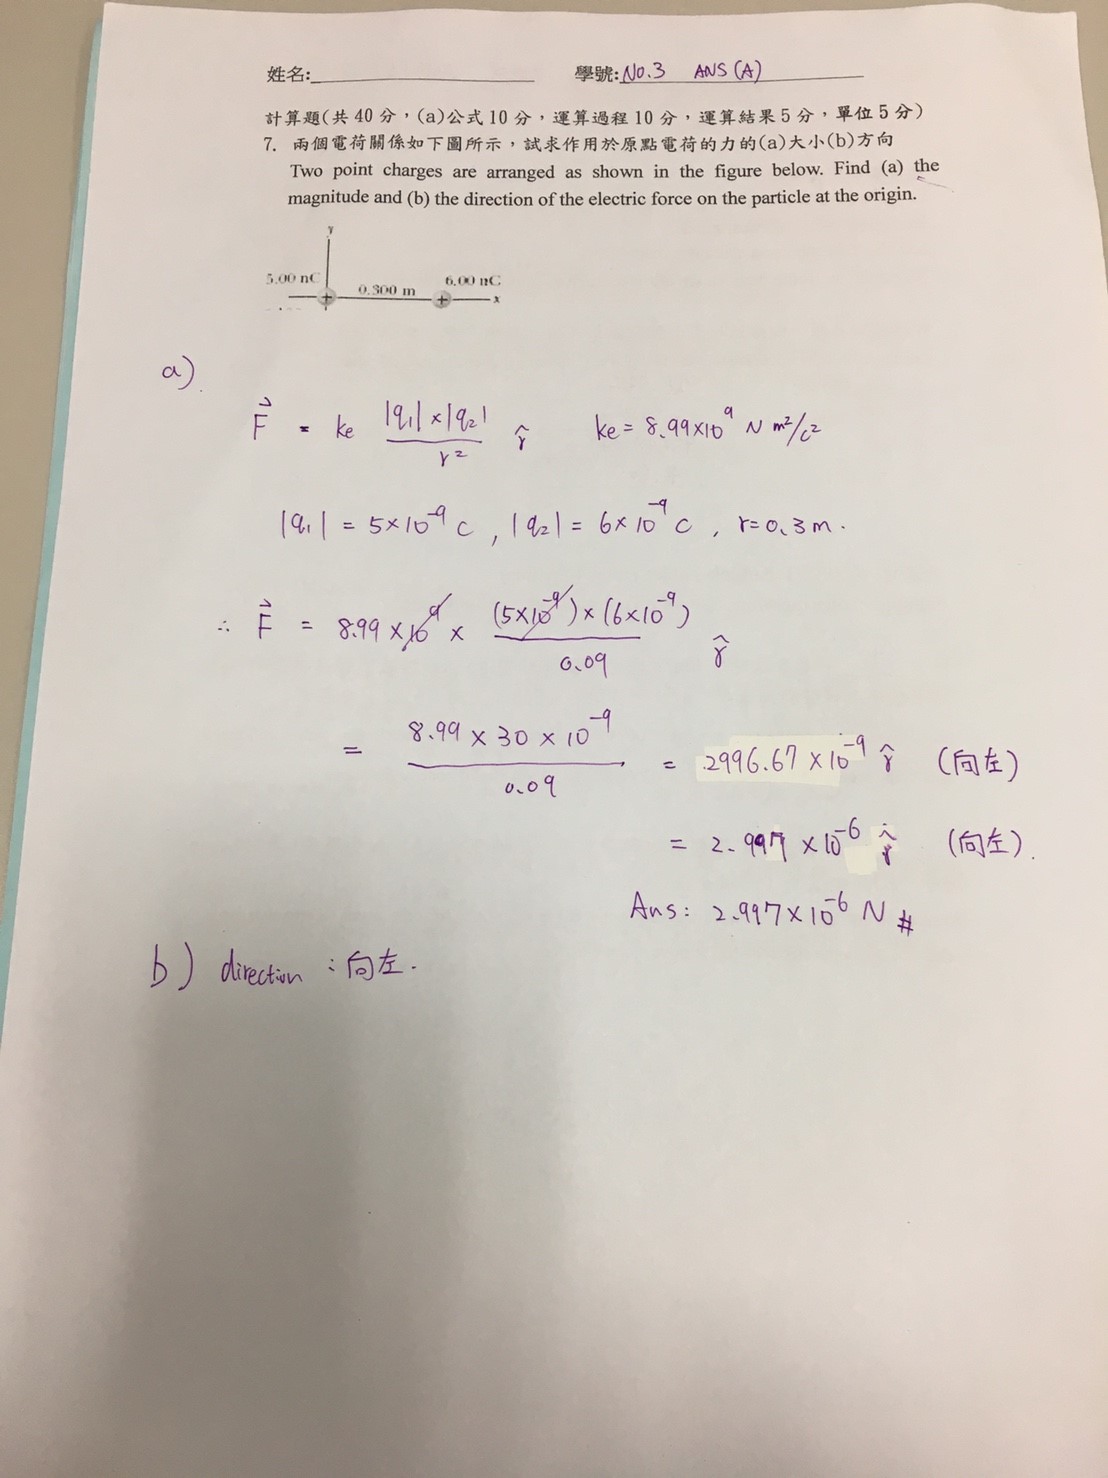 姓名:　　　　　　學號: No.3 ANS (A)
計算題(共 40 分，(a)公式 10 分，運算過程 10 分，運算結果 5 分，單位 5 分)
7. 兩個電荷關係如下圖所示，試求作用於原點電荷的力的(a)大小(b)方向
Two point charges are arranged as shown in the figure below. Find (a) the
magnitude and (b) the direction of the electric force on the particle at the origin.
y
5.00 nC 0.300 m 6.00 nC
+ + x
a)
F⃗ = ke |q₁|×|q₂| / r² r̂ ke = 8.99×10⁹ N m²/c²
|q₁| = 5×10⁻⁹ C , |q₂| = 6×10⁻⁹ C , r=0.3m.
∴ F⃗ = 8.99 ×10⁹ × (5×10⁻⁹)×(6×10⁻⁹) / 0.09 r̂
= 8.99 × 30 × 10⁻⁹ / 0.09 = 2996.67 ×10⁻⁹ r̂ (向左)
= 2.997 ×10⁻⁶ r̂ (向左).
Ans: 2.997×10⁻⁶ N #
b) direction : 向左.